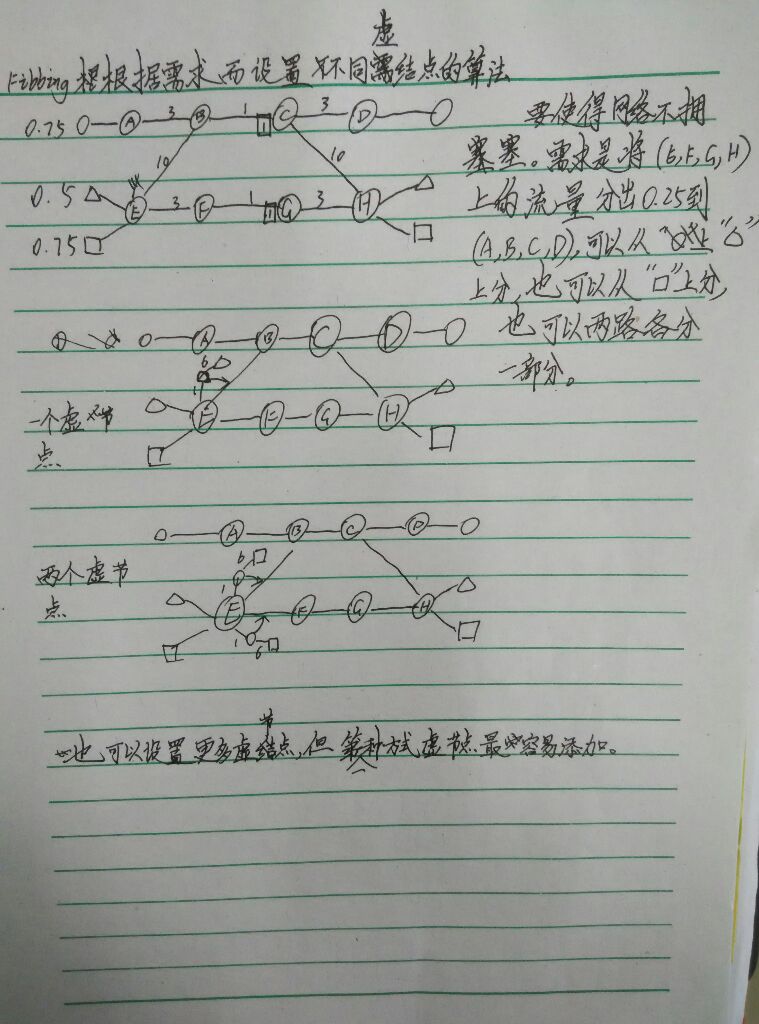 虚
Fibbing 根据需求而设置不同结点的算法
0.75 A 3 B 1 1 C 3 D
10 10
0.5 E 3 F 1 1 G 3 H
0.75
要使得网络不拥
塞塞。需求是将(E,F,G,H)
上的流量分出0.25到
(A,B,C,D),可以从"△"
上分,也可以从"□"上分,
也可以两路各分
一部分。
A B C D
6
1
E F G H
一个虚节
点
A B C D
6
1
两个虚节
点
E F G H
1 6
也可以设置更多虚结点,但第一种方式虚节点最容易添加。
节